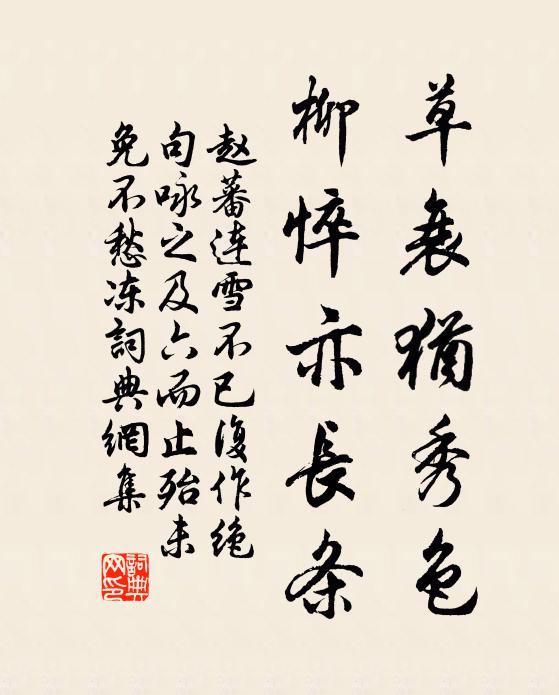 草衰猶秀色
柳悴亦長条
赵蕃連雪不已復作絶
句咏之及六而止殆未
免不愁冻詞典網集
詞典
网印